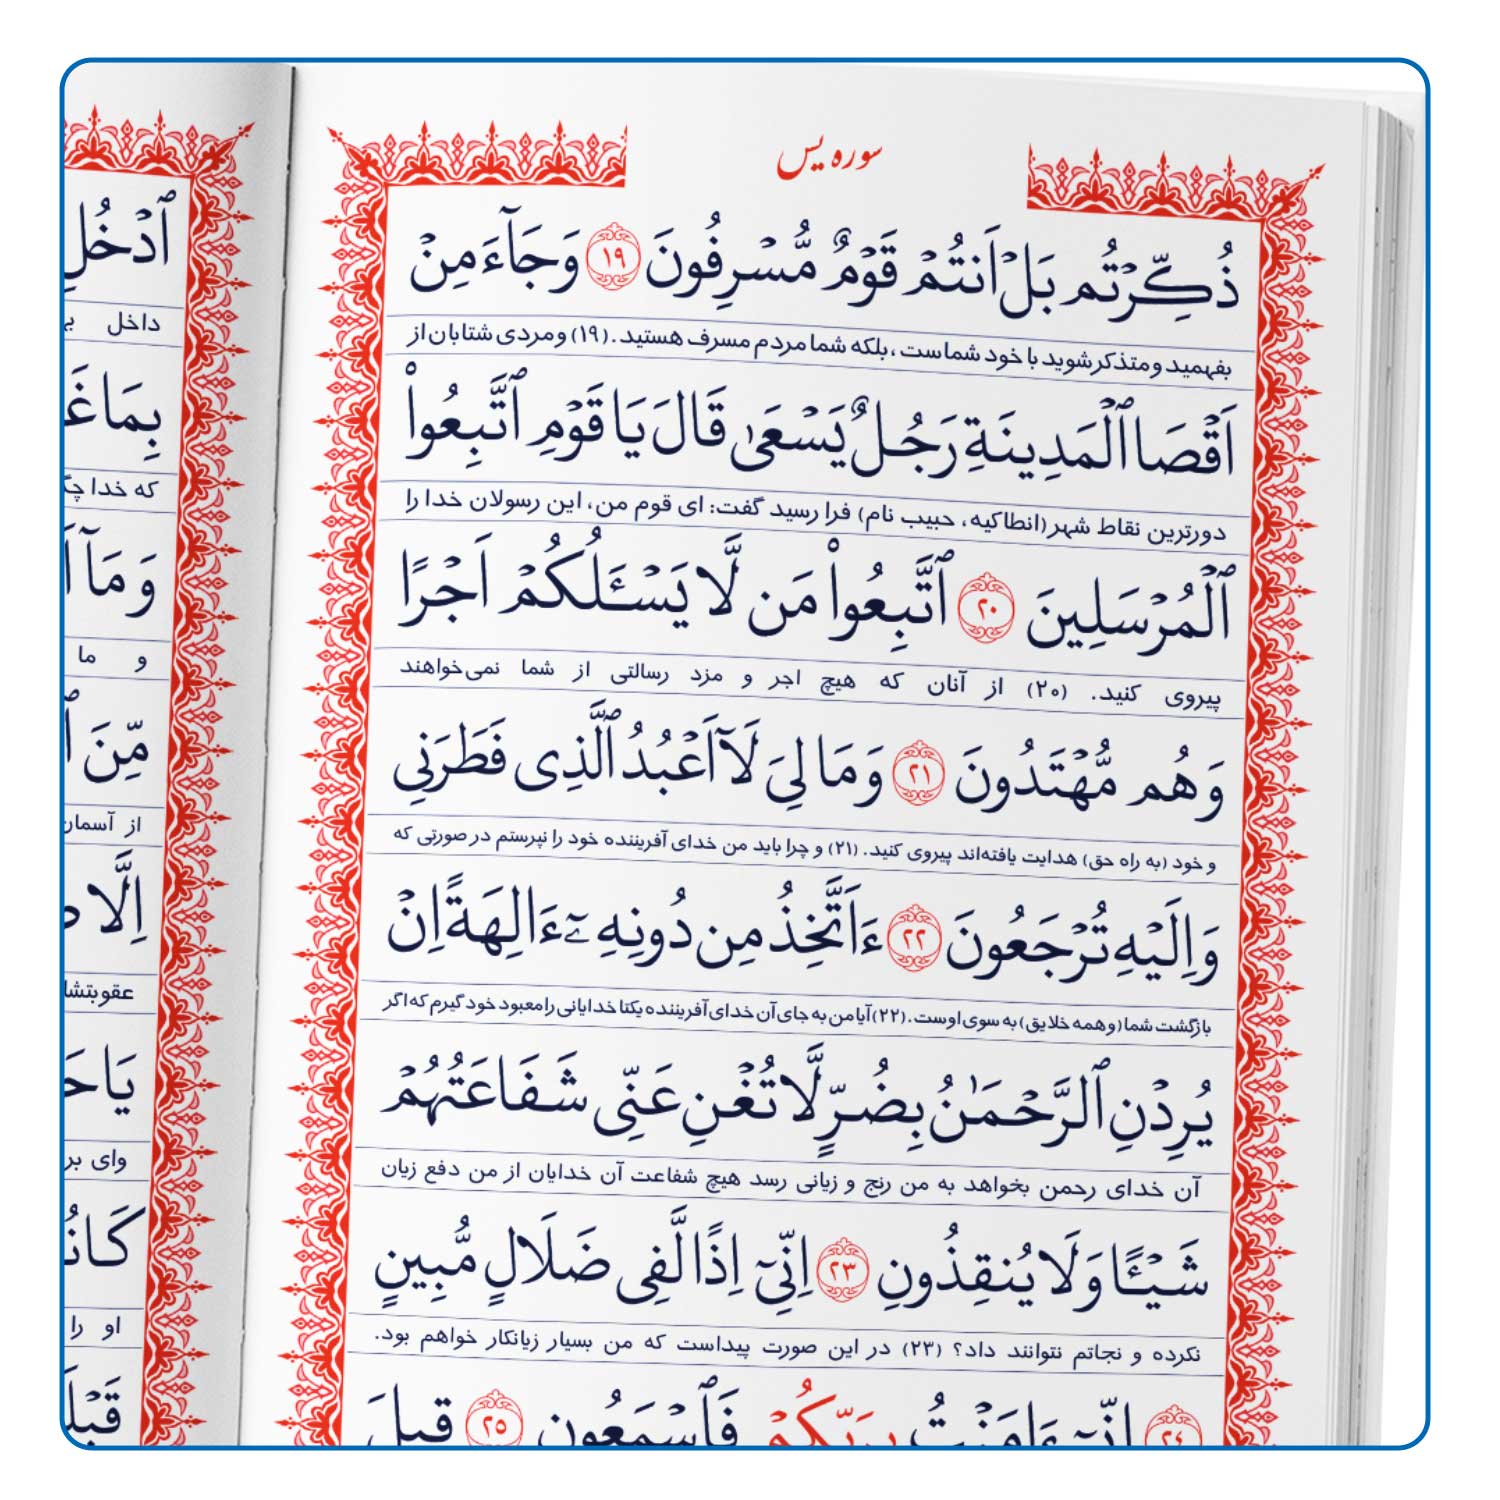 سوره یس
ذُكِّرْتُم بَلْ اَنتُمْ قَوْمٌ مُّسْرِفُونَ ۱۹ وَجَآءَ مِنْ
بفهمید و متذکر شوید با خود شماست، بلکه شما مردم مسرف هستید. (۱۹) و مردی شتابان از
اَقْصَا ٱلْمَدِينَةِ رَجُلٌ يَسْعَىٰ قَالَ يَا قَوْمِ ٱتَّبِعُواْ
دورترین نقاط شهر (انطاکیه، حبیب نام) فرا رسید گفت: ای قوم من، این رسولان خدا را
ٱلْمُرْسَلِينَ ۲۰ ٱتَّبِعُواْ مَن لَّا يَسْـَٔلُكُمْ اَجْرًا
پیروی کنید. (۲۰) از آنان که هیچ اجر و مزد رسالتی از شما نمی‌خواهند
وَهُم مُّهْتَدُونَ ۲۱ وَمَا لِيَ لَآ اَعْبُدُ ٱلَّذِى فَطَرَنِي
و خود (به راه حق) هدایت یافته‌اند پیروی کنید. (۲۱) و چرا باید من خدای آفریننده خود را نپرستم در صورتی که
وَاِلَيْهِ تُرْجَعُونَ ۲۲ ءَاَتَّخِذُ مِن دُونِهِۦٓ ءَالِهَةً اِنْ
بازگشت شما (و همه خلایق) به سوی اوست. (۲۲) آیا من به جای آن خدای آفریننده یکتا خدایانی را معبود خود گیرم که اگر
يُرِدْنِ ٱلرَّحْمَٰنُ بِضُرٍّ لَّا تُغْنِ عَنِّى شَفَاعَتُهُمْ
آن خدای رحمن بخواهد به من رنج و زیانی رسد هیچ شفاعت آن خدایان از من دفع زیان
شَيْـًٔا وَلَا يُنقِذُونِ ۲۳ اِنِّىٓ اِذًا لَّفِى ضَلَالٍ مُّبِينٍ
نکرده و نجاتم نتوانند داد؟ (۲۳) در این صورت پیداست که من بسیار زیانکار خواهم بود.
۲۴ اِنِّىٓ ءَامَنتُ بِرَبِّكُمْ فَٱسْمَعُونِ ۲۵ قِيلَ
ٱدْخُلِ
داخل
بِمَا غَ
که خدا
وَمَآ
و ما
مِّنَ
از آسمان
اِلَّا
عقوبتشا
يَاحَ
وای بر
كَانُ
او را
قَبْلَ